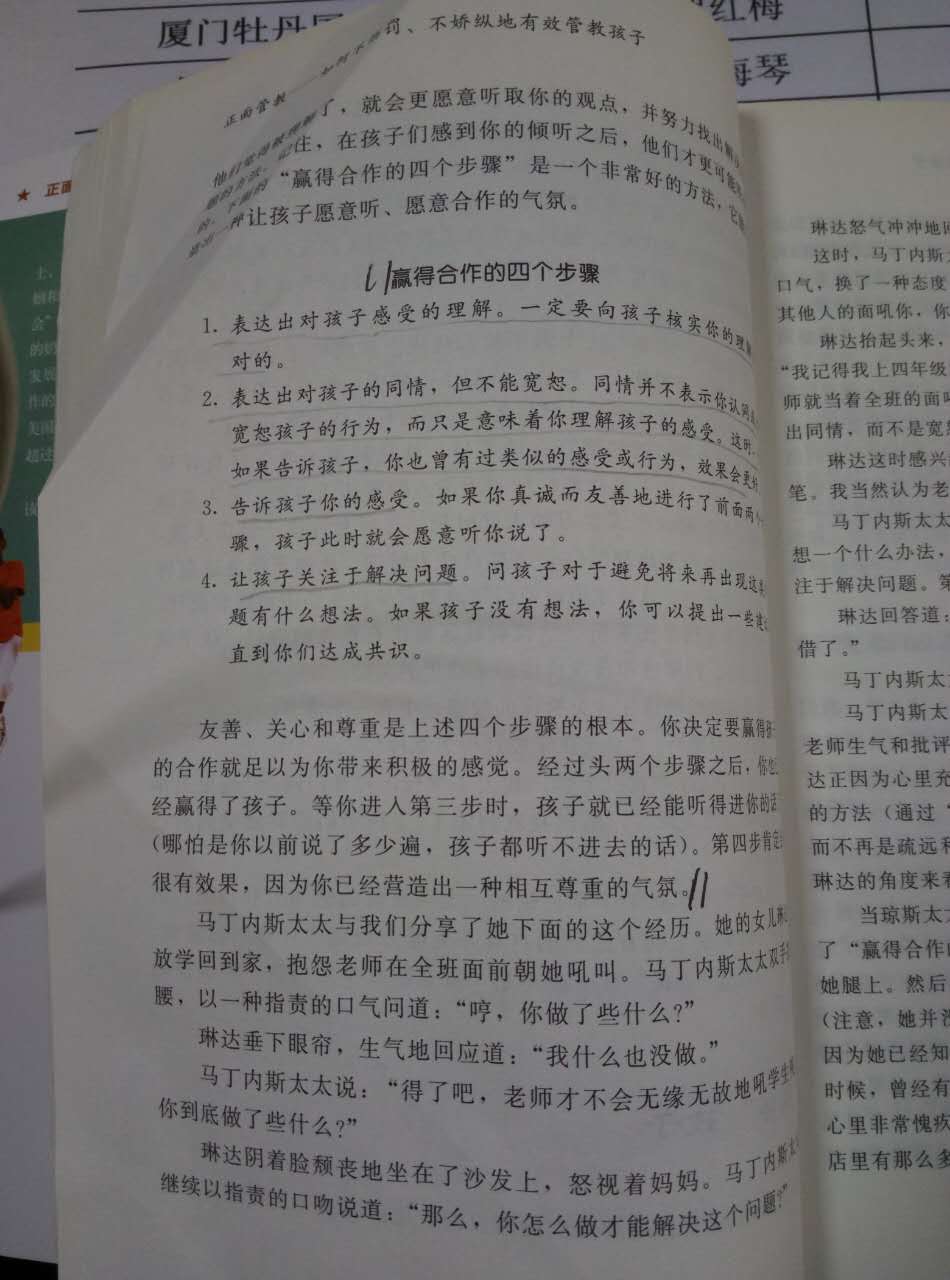 厦门牡丹
红梅
梅琴
★ 正面
士、
会”
的奶
发展
作的
美国
超过
正面管教——如何不惩罚、不娇纵地有效管教孩子
他们觉得被理解了，就会更愿意听取你的观点，并努力找出解决
题的方法。记住，在孩子们感到你的倾听之后，他们才更可能
的。下面的“赢得合作的四个步骤”是一个非常好的方法，它能
造出一种让孩子愿意听、愿意合作的气氛。
赢得合作的四个步骤
1. 表达出对孩子感受的理解。一定要向孩子核实你的理解
对的。
2. 表达出对孩子的同情，但不能宽恕。同情并不表示你认同
宽恕孩子的行为，而只是意味着你理解孩子的感受。这时，
如果告诉孩子，你也曾有过类似的感受或行为，效果会更
3. 告诉孩子你的感受。如果你真诚而友善地进行了前面两个
骤，孩子此时就会愿意听你说了。
4. 让孩子关注于解决问题。问孩子对于避免将来再出现这类
题有什么想法。如果孩子没有想法，你可以提出一些建
直到你们达成共识。
友善、关心和尊重是上述四个步骤的根本。你决定要赢得孩
的合作就足以为你带来积极的感觉。经过头两个步骤之后，你也
经赢得了孩子。等你进入第三步时，孩子就已经能听得进你的话
(哪怕是你以前说了多少遍，孩子都听不进去的话)。第四步肯定
很有效果，因为你已经营造出一种相互尊重的气氛。
马丁内斯太太与我们分享了她下面的这个经历。她的女儿琳
放学回到家，抱怨老师在全班面前朝她吼叫。马丁内斯太太双手
腰，以一种指责的口气问道：“哼，你做了些什么?”
琳达垂下眼帘，生气地回应道：“我什么也没做。”
马丁内斯太太说：“得了吧，老师才不会无缘无故地吼学生
你到底做了些什么?”
琳达阴着脸颓丧地坐在了沙发上，怒视着妈妈。马丁内斯太
继续以指责的口吻说道：“那么，你怎么做才能解决这个问题?”
琳达怒气冲冲地回
这时，马丁内斯
口气，换了一种态度
其他人的面吼你，你
琳达抬起头来，
“我记得我上四年级
师就当着全班的面
出同情，而不是宽
琳达这时感兴
笔。我当然认为老
马丁内斯太太
想一个什么办法，
注于解决问题。第
琳达回答道：
借了。”
马丁内斯太
马丁内斯太
老师生气和批评
达正因为心里充
的方法（通过“
而不再是疏远和
琳达的角度来看
当琼斯太
了“赢得合作的
她腿上。然后
(注意，她并没
因为她已经知
时候，曾经有
心里非常愧疚
店里有那么多